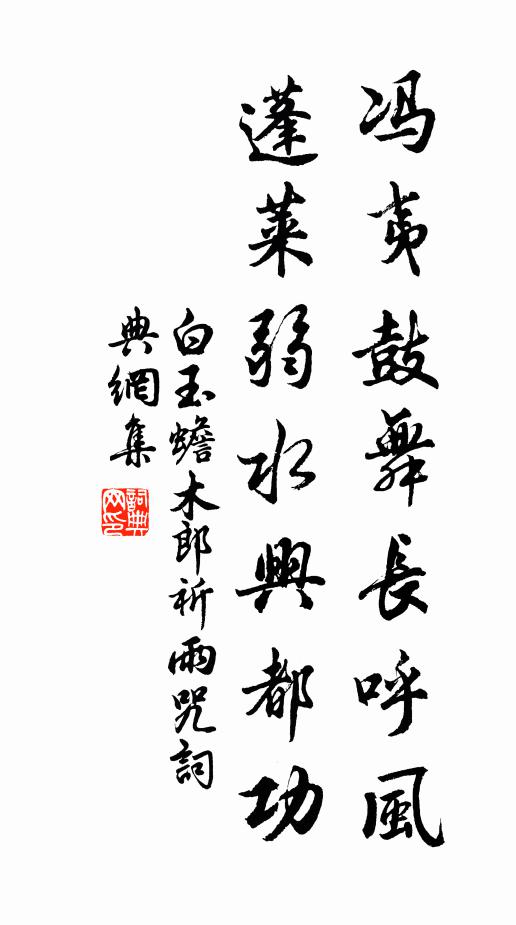 冯夷鼓舞長呼風
蓬莱弱水興都功
白玉蟾木郎祈雨咒詞
典網集
詞典网印